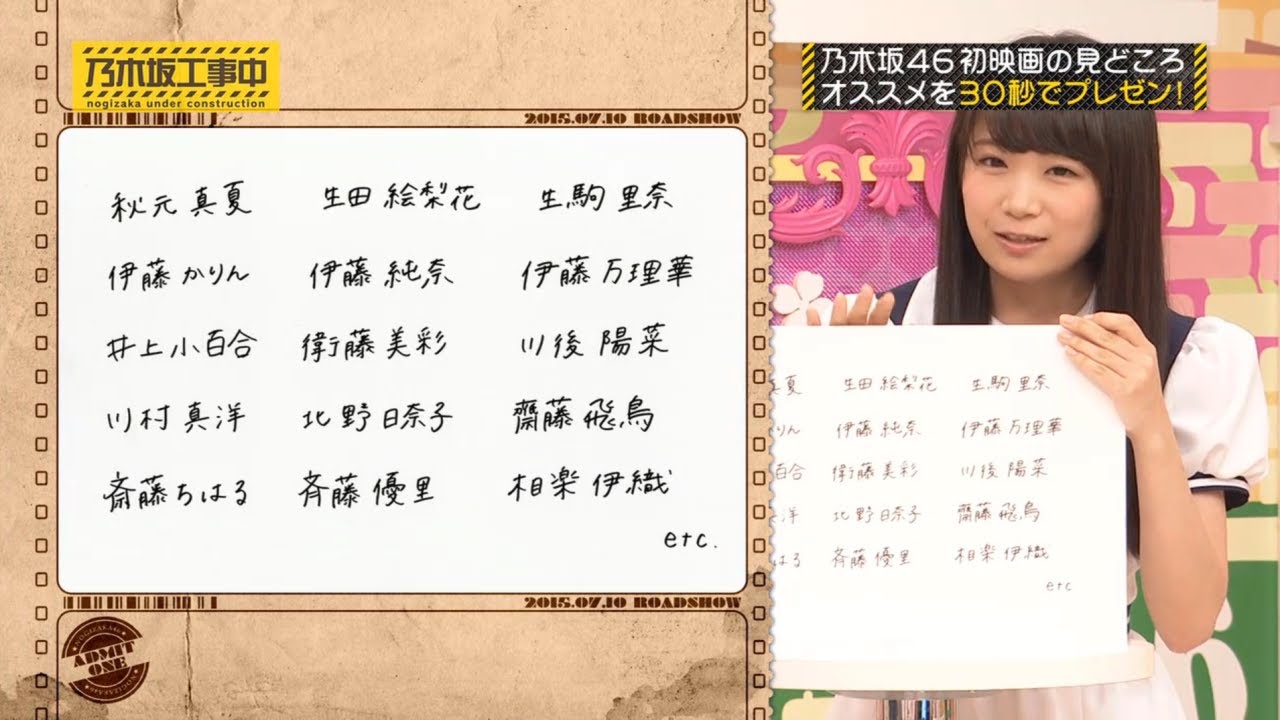 乃木坂工事中
nogizaka under construction
乃木坂46初映画の見どころ
オススメを30秒でプレゼン!
2015.07.10 ROADSHOW
秋元 真夏 生田 絵梨花 生駒 里奈
伊藤 かりん 伊藤 純奈 伊藤 万理華
井上 小百合 衛藤 美彩 川後 陽菜
川村 真洋 北野 日奈子 齋藤 飛鳥
斎藤 ちはる 斉藤 優里 相楽 伊織
etc.
2015.07.10 ROADSHOW
NOGIZAKA46
ADMIT
ONE
NOGIZAKA46
真夏 生田 絵梨花 生駒 里奈
りん 伊藤 純奈 伊藤 万理華
百合 衛藤 美彩 川後 陽菜
洋 北野 日奈子 齋藤 飛鳥
はる 斉藤 優里 相楽 伊織
etc